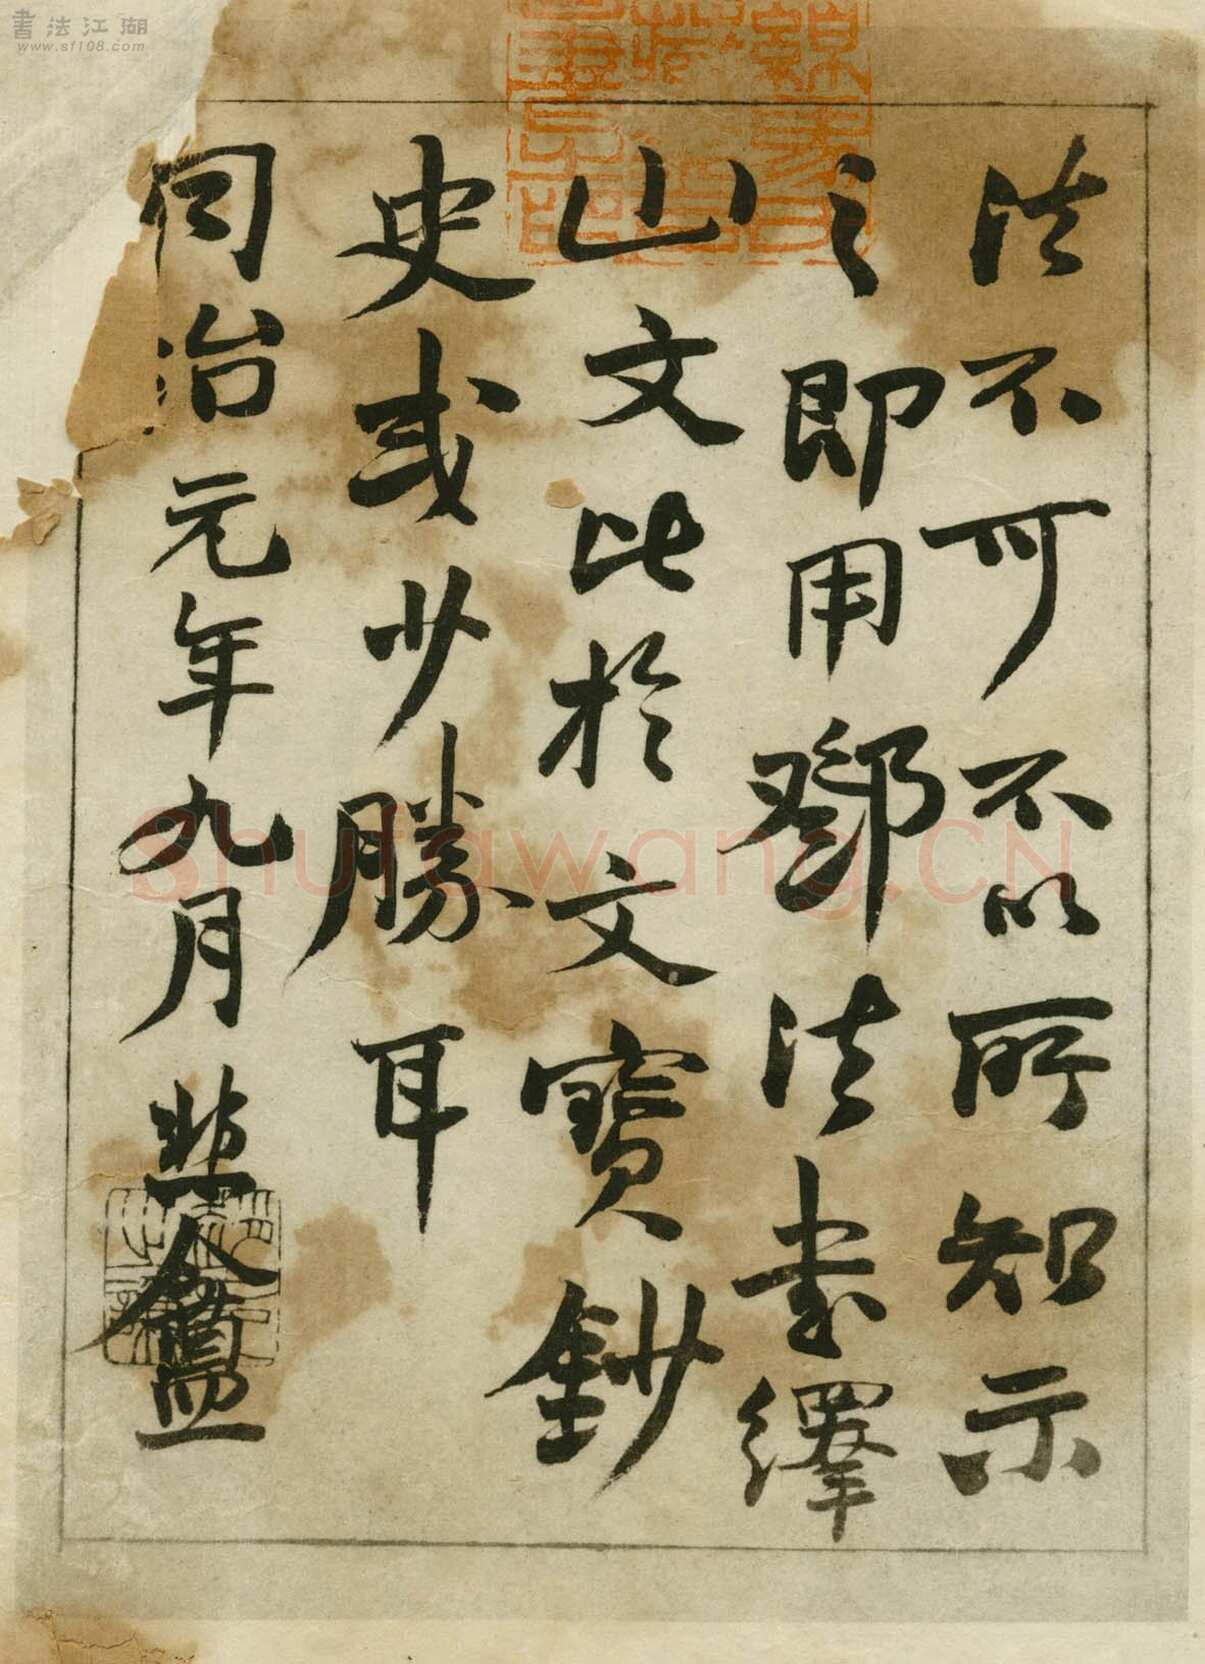 法不可不以所知示
之即用鄧法書繹
山文此於文寶鈔
史或少勝耳
同治元年九月悲盦
書法江湖
www.sf108.com
Shufawang.CN